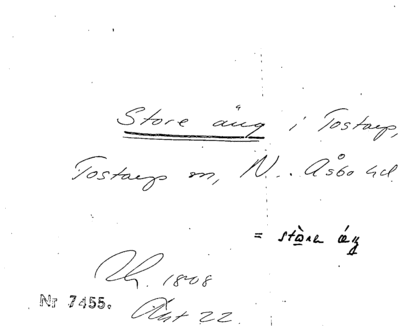 Store äng i Tostarp,
Tostarp sn, N. Åsbo hd.
= störe äng
1808
Nr 7455. Akt 22.